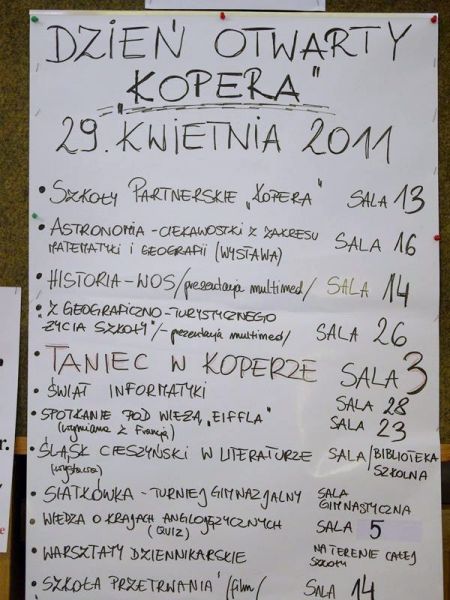 DZIEŃ OTWARTY
„KOPERA"
29. KWIETNIA 2011
• SZKOŁY PARTNERSKIE „KOPERA" SALA 13
• ASTRONOMIA - CIEKAWOSTKI Z ZAKRESU
MATEMATYKI I GEOGRAFII (WYSTAWA) SALA 16
• HISTORIA - WOS /prezentacja multimed/ SALA 14
• „Z GEOGRAFICZNO - TURYSTYCZNEGO
ŻYCIA SZKOŁY"/- prezentacja multimed/ SALA 26
• TANIEC W KOPERZE SALA 3
• ŚWIAT INFORMATYKI SALA 28
• SPOTKANIE POD WIEŻĄ „EIFFLA" SALA 23
(wymiana z Francją)
• ŚLĄSK CIESZYŃSKI W LITERATURZE SALA/BIBLIOTEKA
(wystawa) SZKOLNA
• SIATKÓWKA - TURNIEJ GIMNAZJALNY SALA
GIMNASTYCZNA
• WIEDZA O KRAJACH ANGLOJĘZYCZNYCH SALA 5
(QUIZ)
• WARSZTATY DZIENNIKARSKIE NA TERENIE CAŁEJ
SZKOŁY
• „SZKOŁA PRZETRWANIA" /film/ SALA 14
r.